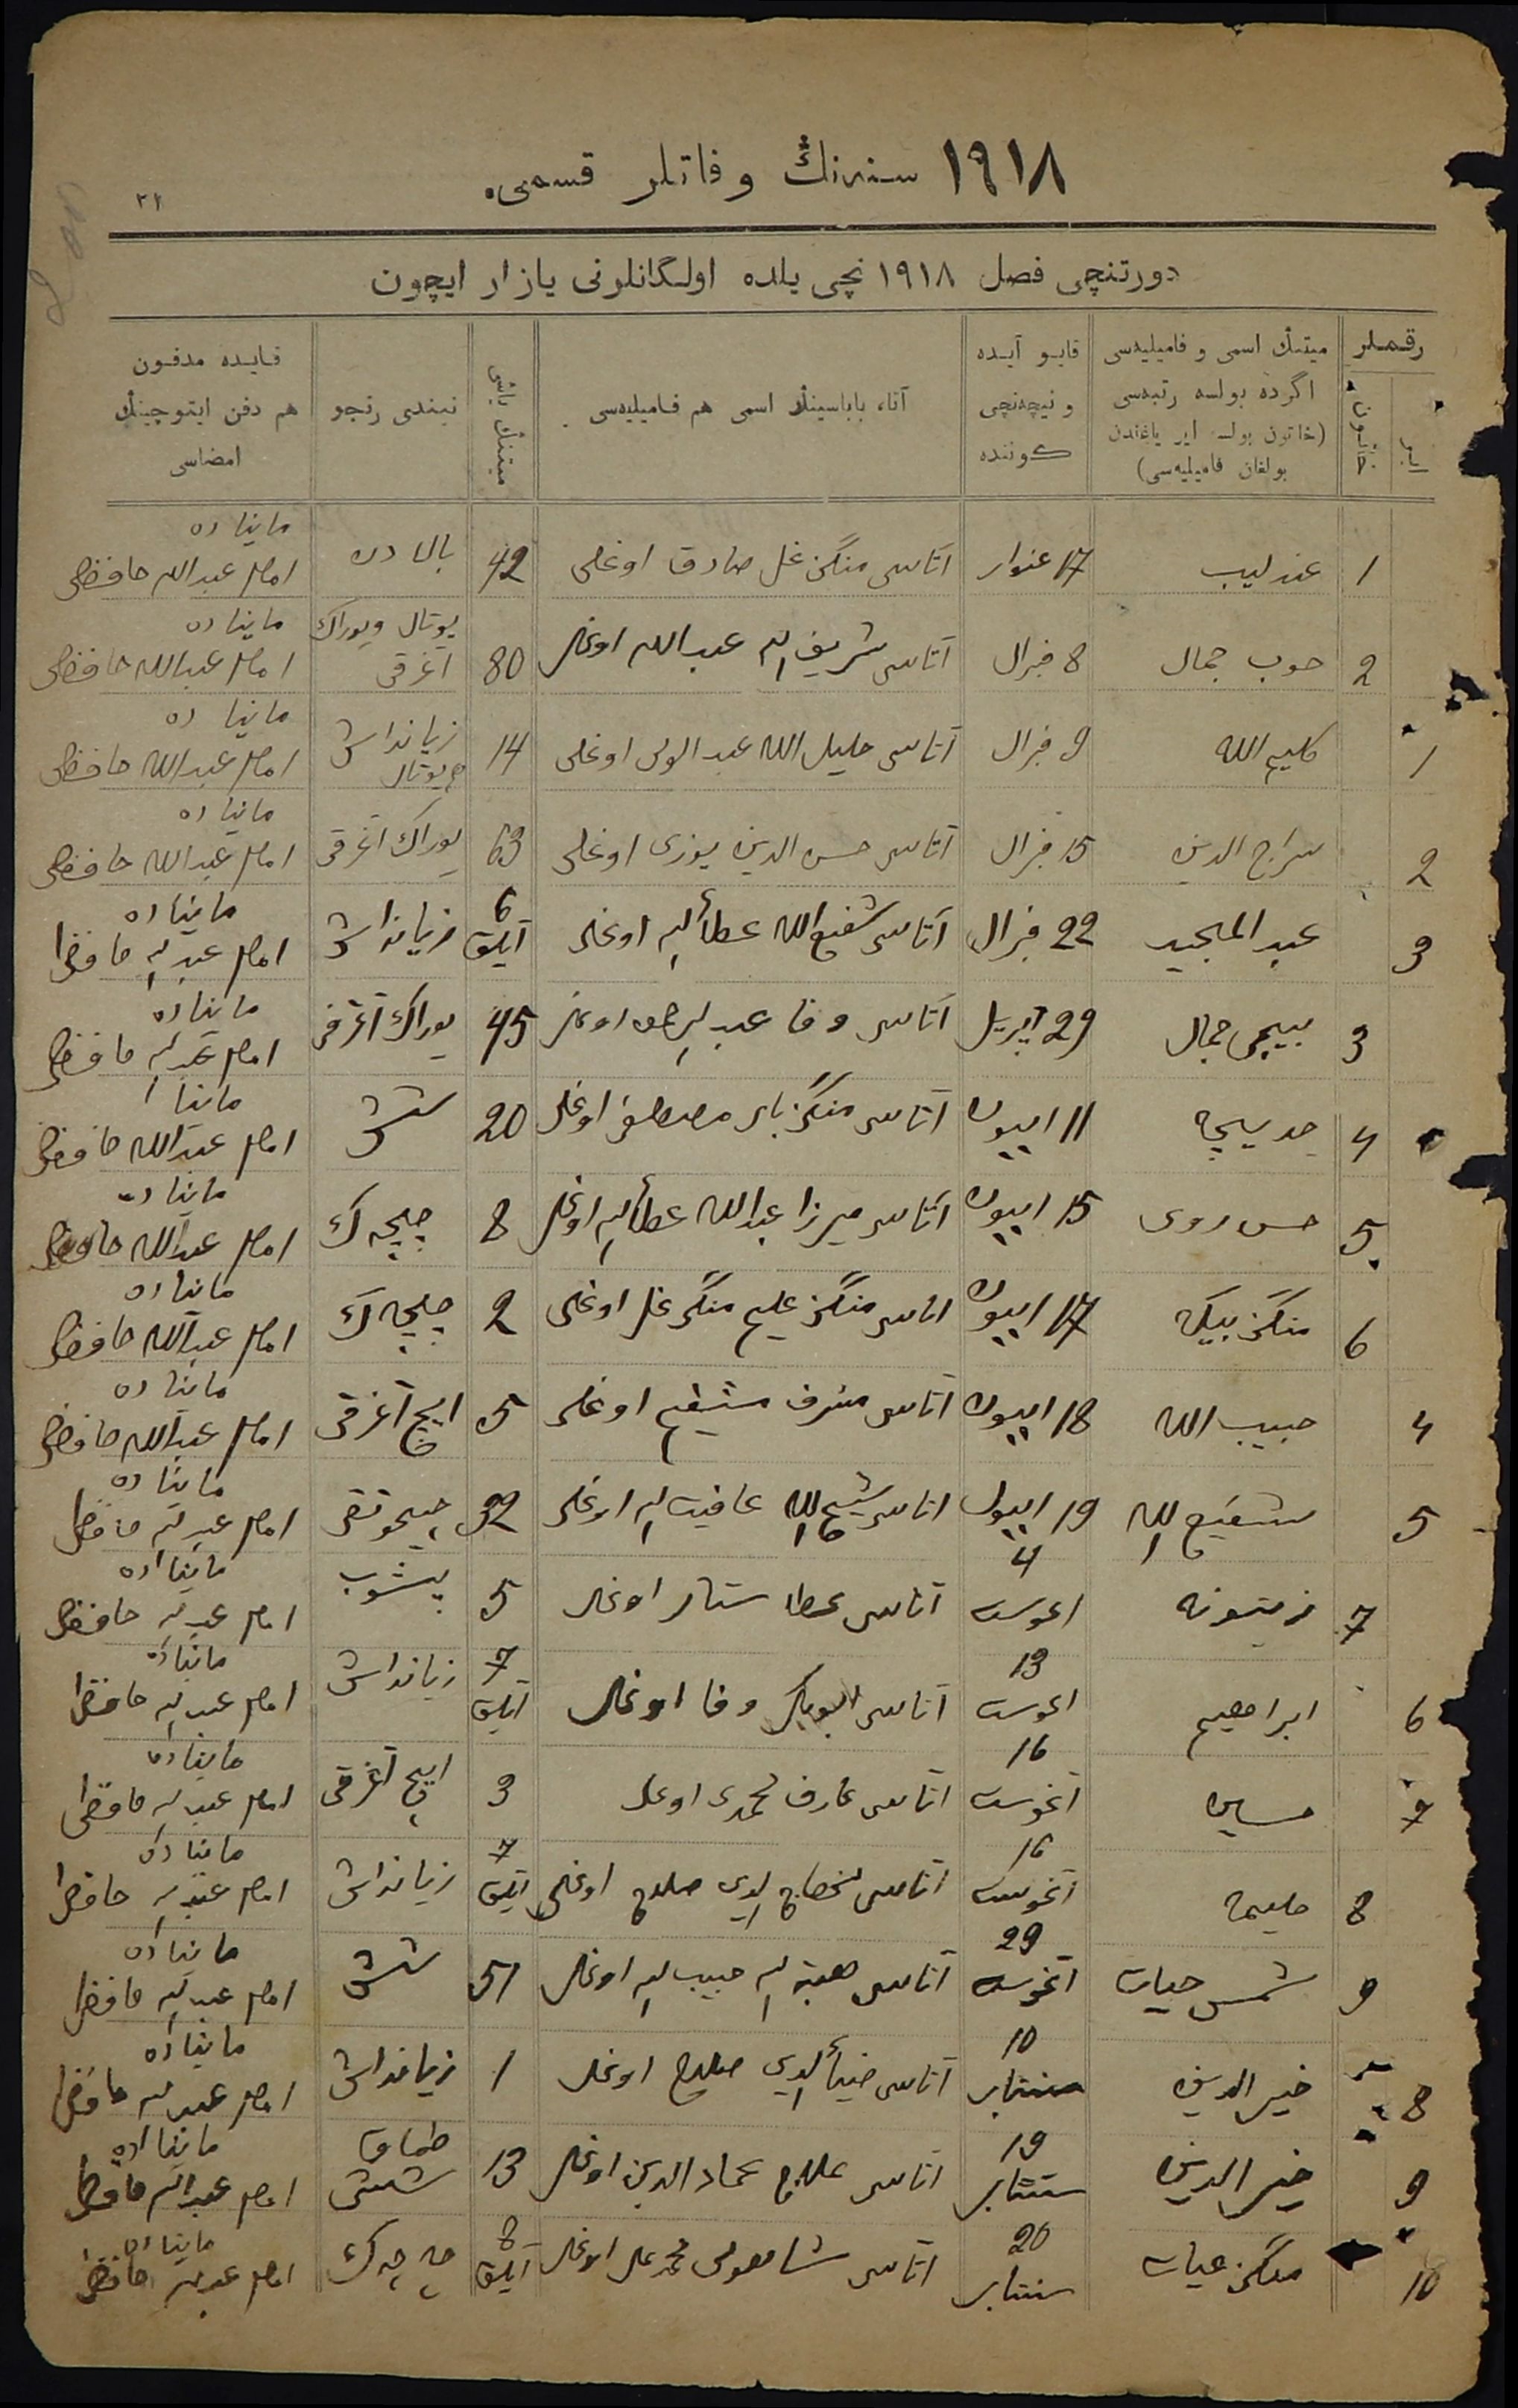 ١٩١٨ سنه‌نڭ وفاتلر قسمی.
٣٤
دورتنچی فصل ١٩١٨ نچی یلده اولگانلرنی یازار ایچون
رقملر
ایر
خاتون
میتنڭ اسمی و فامیلیه‌سی اگرده بولسه رتبه‌سی (خاتون بولسه ایر یاغندن بولغان فامیلیه‌سی)
قایو آیده و نیچه‌نچی كوننده
آتا، باباسینڭ اسمی هم فامیلیه‌سی
میتنڭ یاشی
نیندی رنجو
قایده مدفون هم دفن ایتوچینڭ امضاسی
1 عندلیب 17 غنوار آتاسی منگن غل صادق اوغلی 42 بالادن ماینا ده امام عبدالله حافظی
2 حوب جمال 8 فبرال آتاسی شریف الله عبدالله اوغلی 80 یوتال و یوراك آغرقی ماینا ده امام عبدالله حافظی
1 كلیم الله 9 فبرال آتاسی خلیل الله عبد الولی اوغلی 14 زیانداش هم یوتال ماینا ده امام عبدالله حافظی
2 سراج الدین 15 فبرال آتاسی حسن الدین یوزی اوغلی 63 یوراك آغرقی ماینا ده امام عبدالله حافظی
3 عبد المجید 22 فبرال آتاسی شفیع الله عطأ الله اوغلی 6 آیلق زیانداش ماینا ده امام عبدالله حافظی
3 بیبی جمال 29 آپریل آتاسی وفا اوغلی 45 یوراك آغرقی ماینا ده امام عبدالله حافظی
4 خدیجه 11 اییول آتاسی منگن بای مصطفی اوغلی 20 شش ماینا امام عبدالله حافظی
5 حسن روی 15 اییول آتاسی میرزا عبدالله عطأ الله اوغلی 8 چیچه‌ك ماینا ده امام عبدالله حافظی
6 منگن بیكه 17 اییول اتاسی منگن علیم منگن غل اوغلی 2 چیچه‌ك ماینا ده امام عبدالله حافظی
4 حبیب الله 18 اییول آتاسی مشرف مشفیع اوغلی 5 ایچ آغرقی ماینا ده امام عبدالله حافظی
5 شفیع الله 19 اییول اتاسی شیخ الله عافیت الله اوغلی 32 ماینا ده امام عبدالله حافظی
7 زیتونه 4 اغوست آتاسی عطا ستار اوغلی 5 ماینا ده امام عبدالله حافظی
6 ابراهیم 13 اغوست آتاسی ابوبكر وفا اوغلی 7 آیلق زیانداش ماینا ده امام عبدالله حافظی
7 حسین 16 آغوست آتاسی عارف محمدی اوغلی 3 ایچ آغرقی ماینا ده امام عبدالله حافظی
8 حلیمه 16 آغوست آتاسی الدین صلاح اوغلی 7 آیلق زیانداش ماینا ده امام عبدالله حافظی
9 شمس حیات 29 آغوست آتاسی هبة الله حبیب الله اوغلی 51 شش ماینا ده امام عبدالله حافظی
8 خیر الدین 10 سنتابر آتاسی ضیأ الدین صلاح اوغلی 1 زیانداش ماینا ده امام عبدالله حافظی
9 خیر الدین 19 سنتابر اتاسی علاج عماد الدین اوغلی 13 طماق ششی ماینا ده امام عبدالله حافظی
10 منگن 20 سنتابر اتاسی محمد علی اوغلی 8 آیلق چه چه‌ك ماینا ده امام عبدالله حافظی